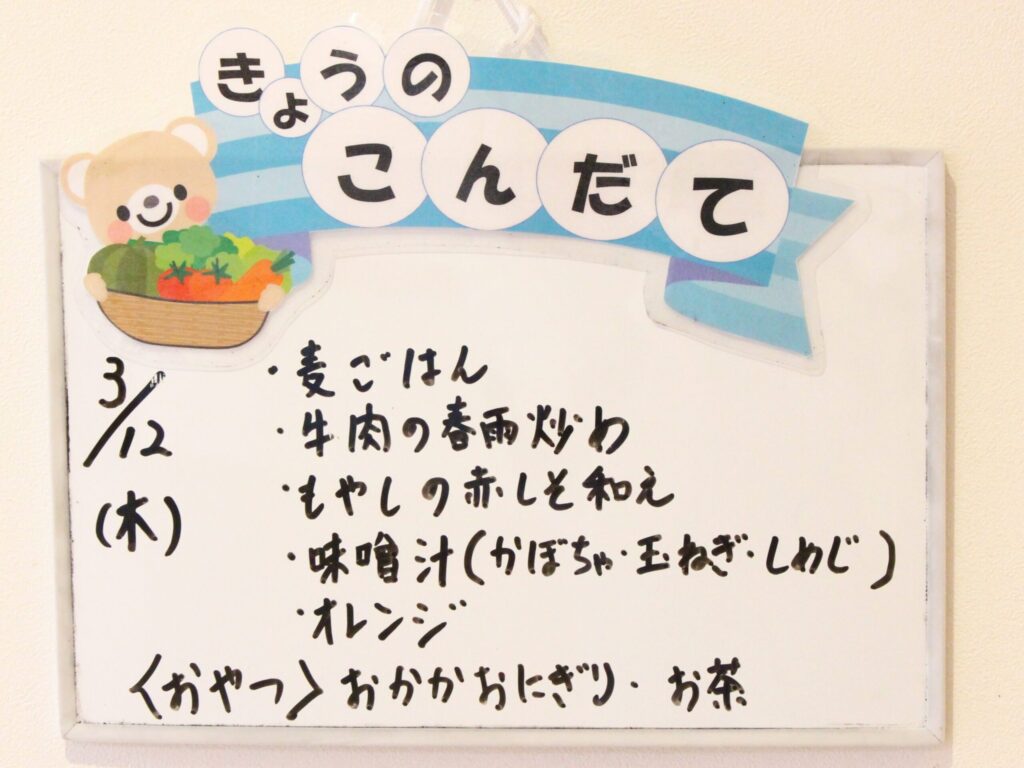 きょうの
こんだて
3/12
(木)
・麦ごはん
・牛肉の春雨炒め
・もやしの赤しそ和え
・味噌汁(かぼちゃ・玉ねぎ・しめじ)
・オレンジ
〈おやつ〉おかかおにぎり・お茶